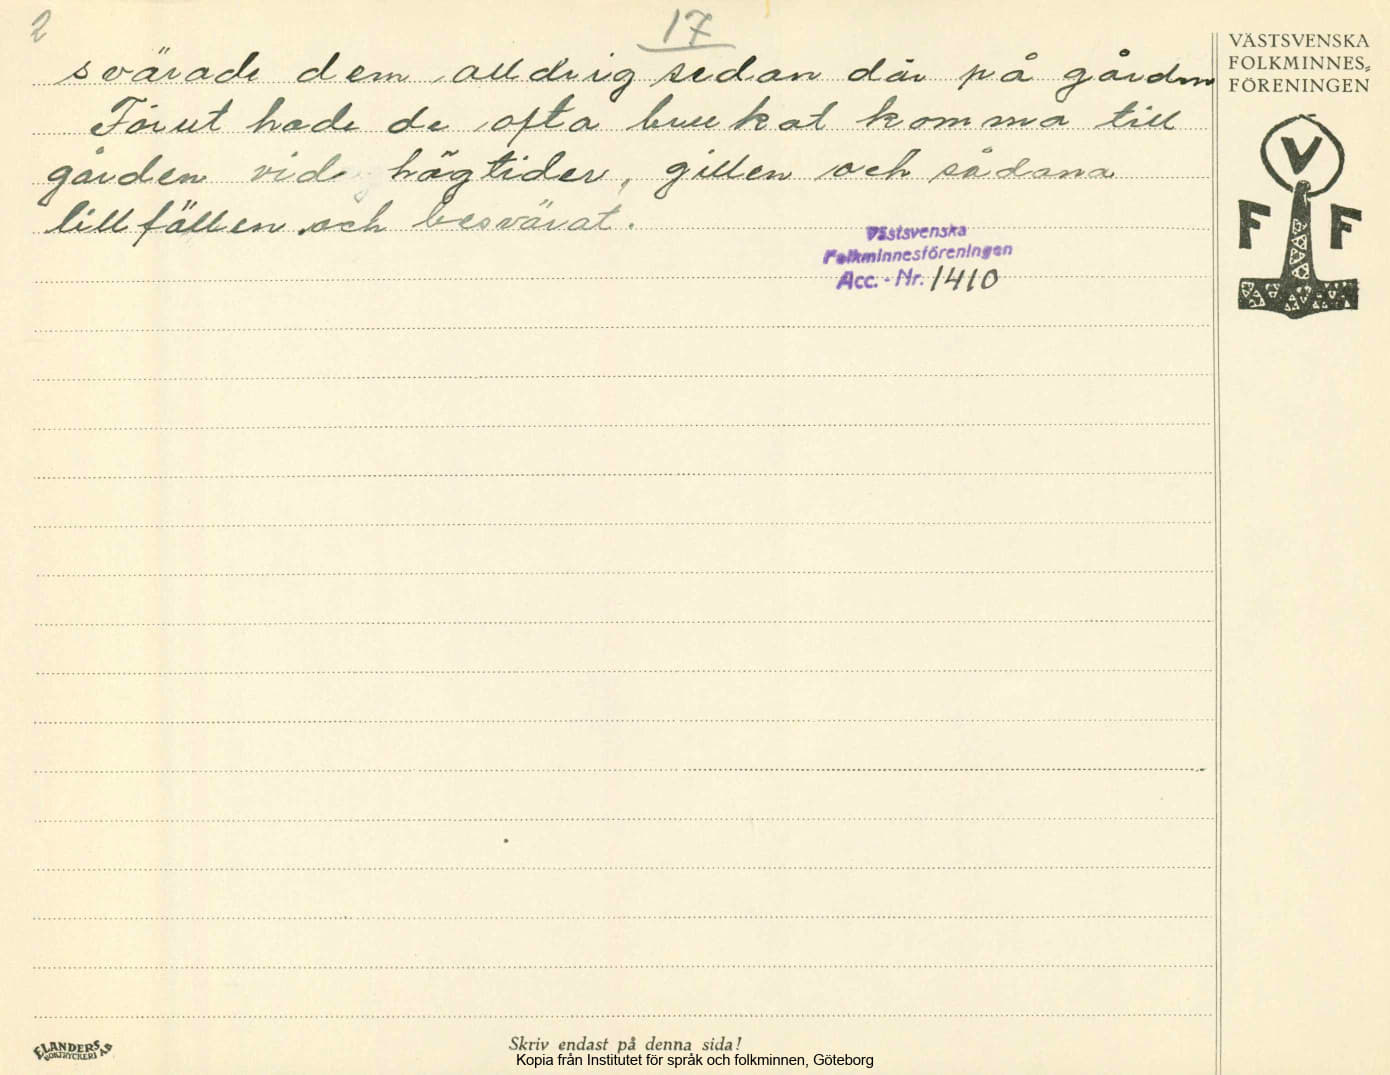 2
17
svärade dem alldrig sedan där på gården
Förut hade de ofta brukat komma till
gården vid högtider, gillen och sådana
tillfällen och besvärat.
Västsvenska
Folkminnesföreningen
Acc. - Nr. 1410
VÄSTSVENSKA
FOLKMINNES-
FÖRENINGEN
V
F F
ELANDERS
BOKTRYCKERI AB
Skriv endast på denna sida!
Kopia från Institutet för språk och folkminnen, Göteborg